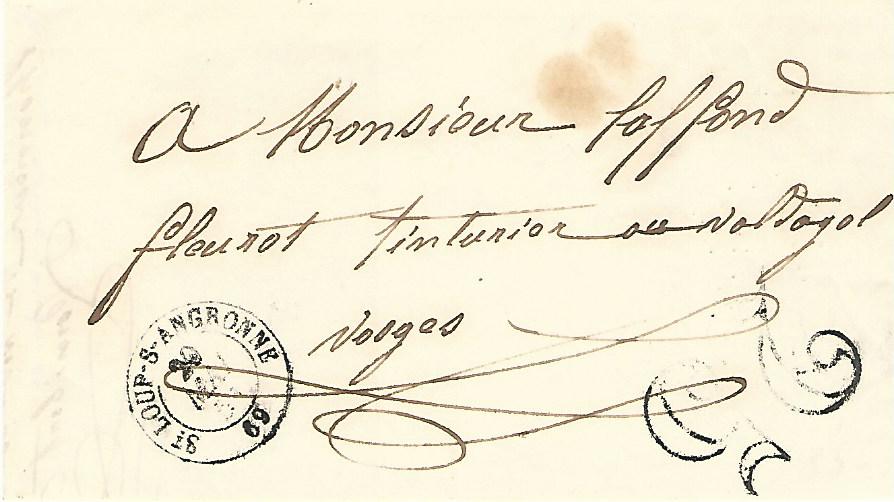 A Monsieur Laffond
fleurot tinturier au valdagol
vosges
ST LOUP-S-ANGRONNE
69
25